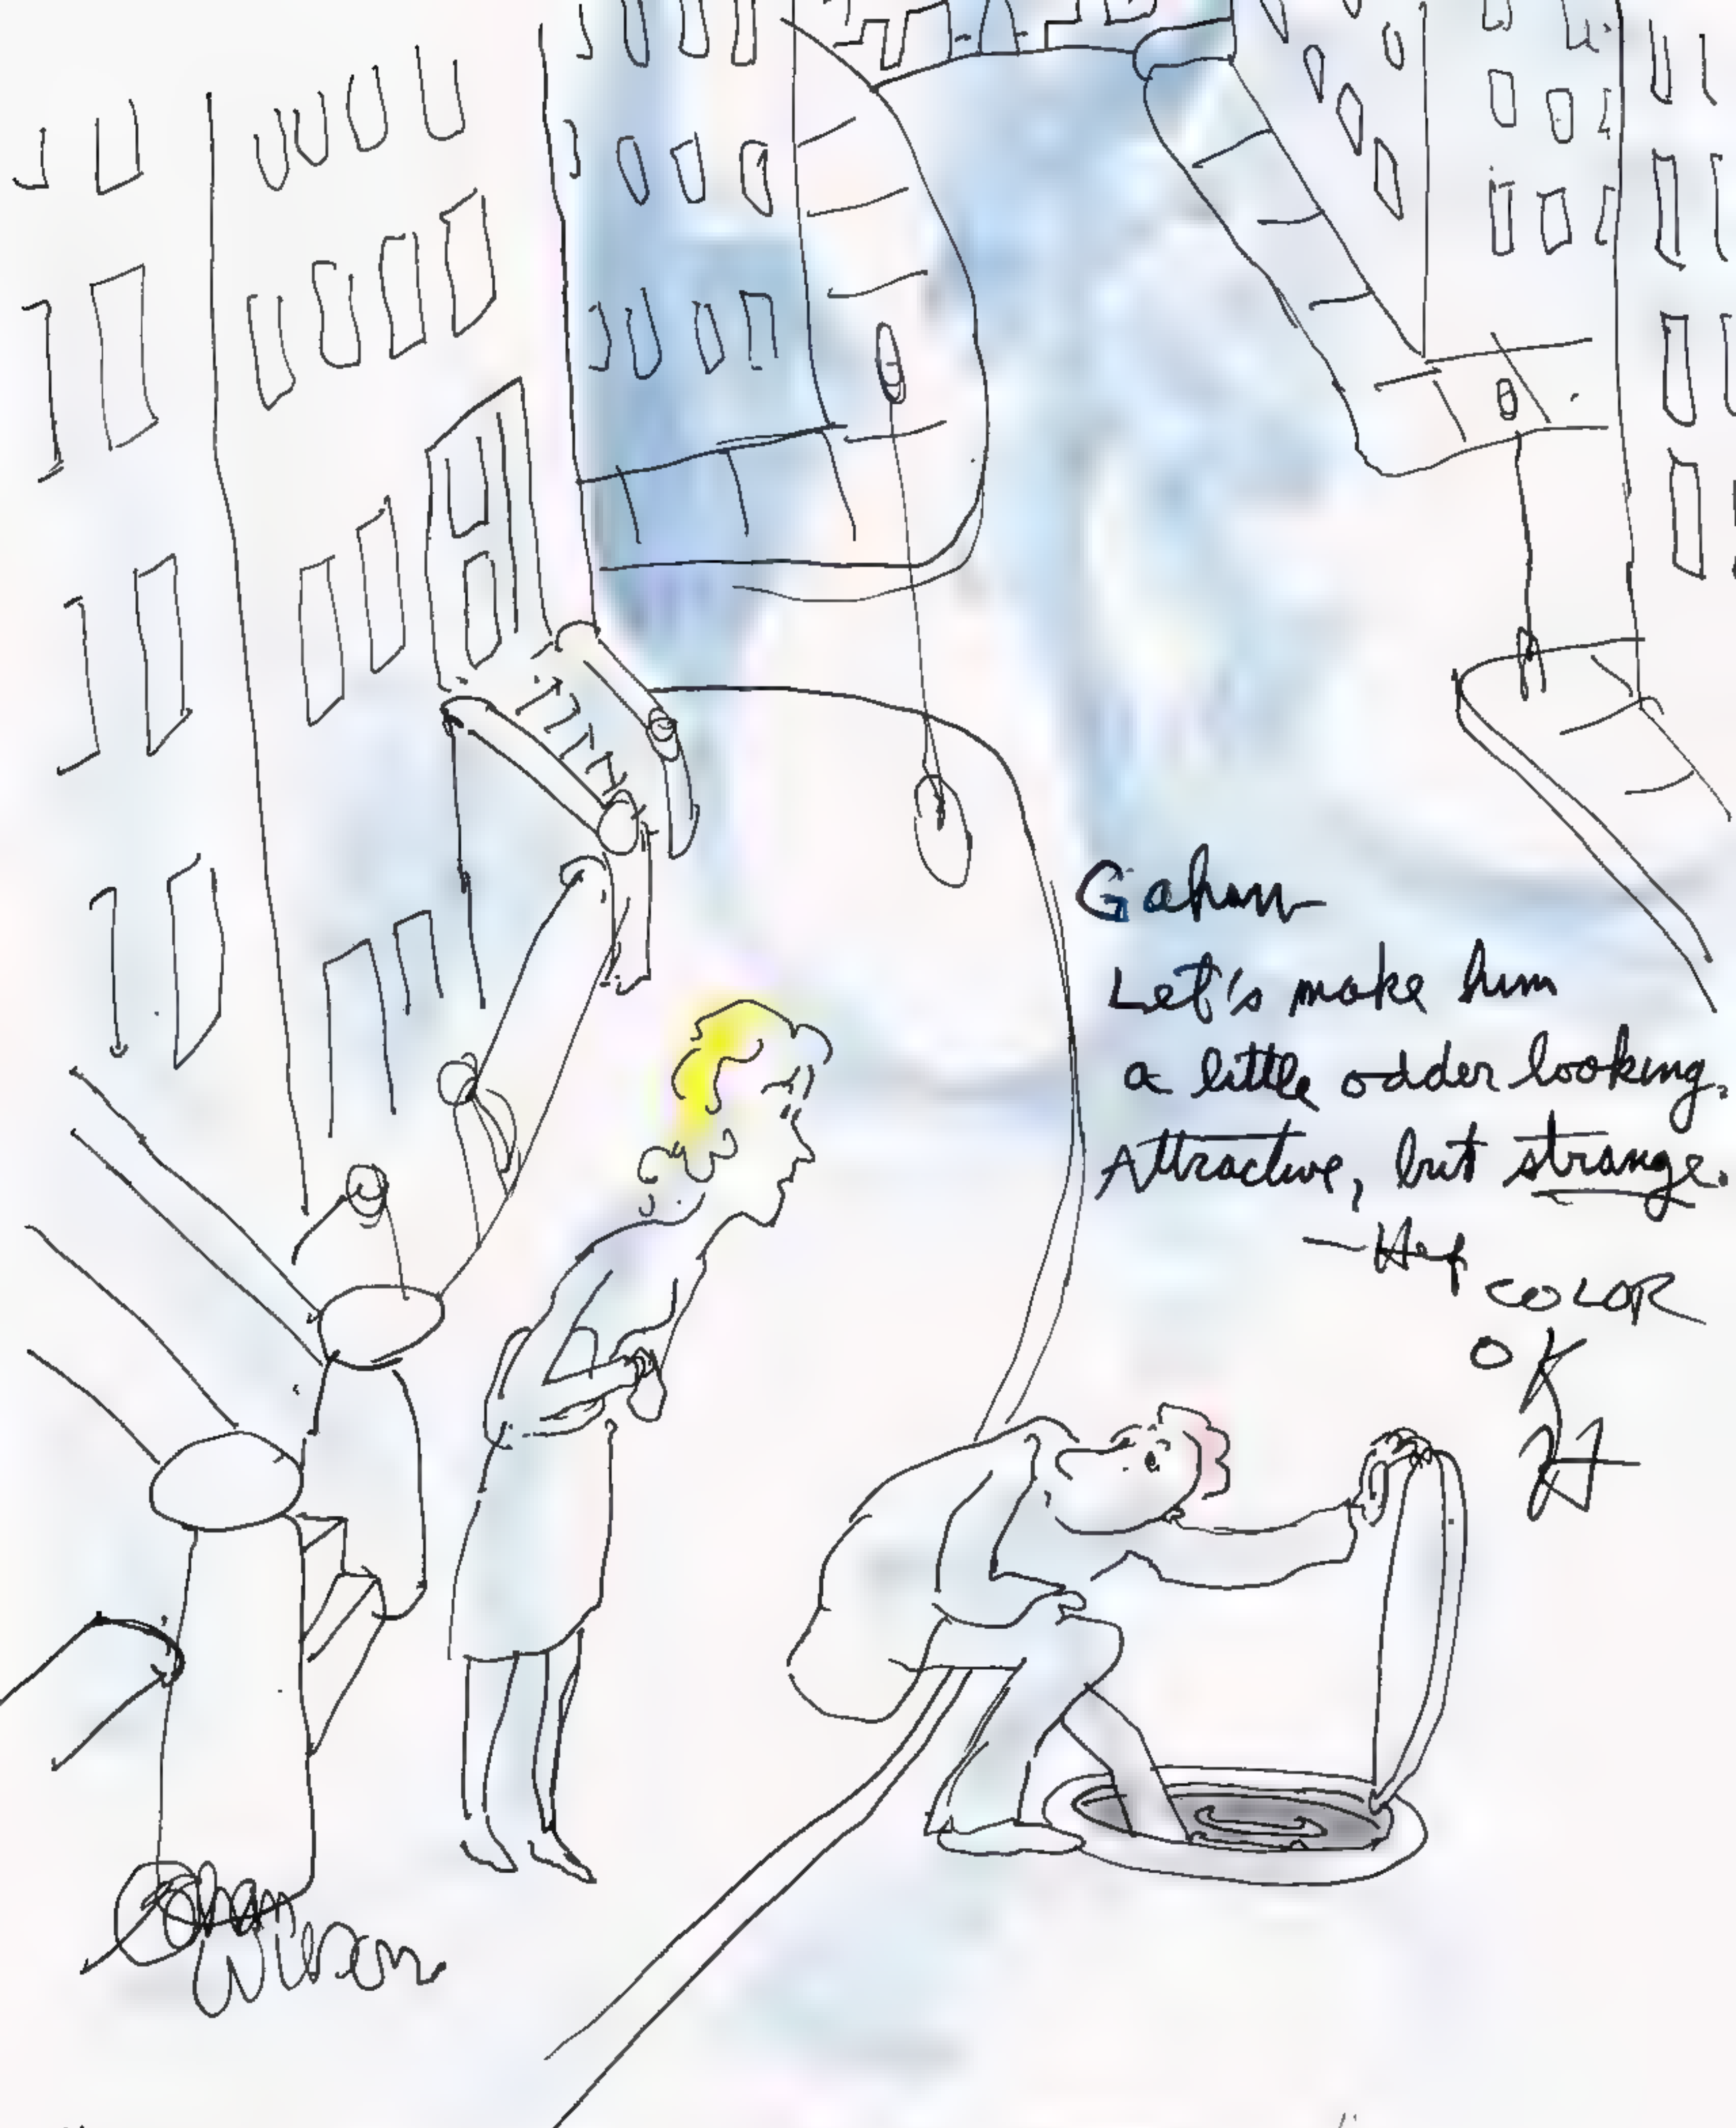 Gahan
Let's make him
a little odder looking.
Attractive, but strange.
—Hef
COLOR
OK
Gahan
Wilson